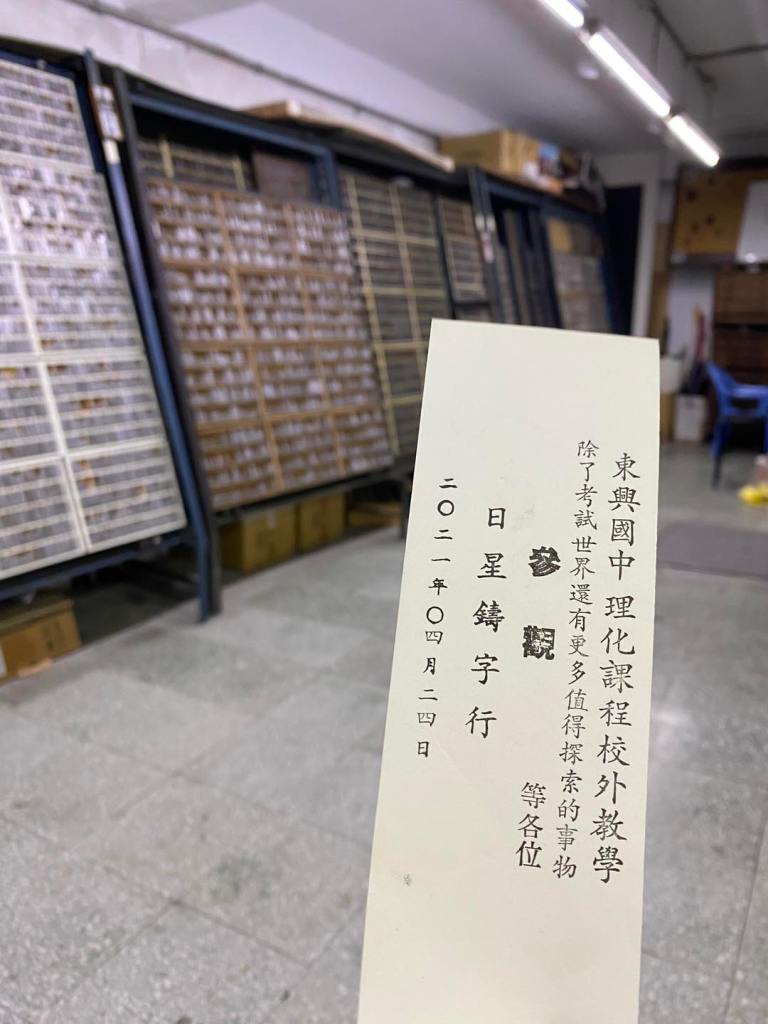 東興國中 理化課程校外教學
除了考試世界還有更多值得探索的事物
參觀 等各位
日星鑄字行
二〇二一年〇四月二四日